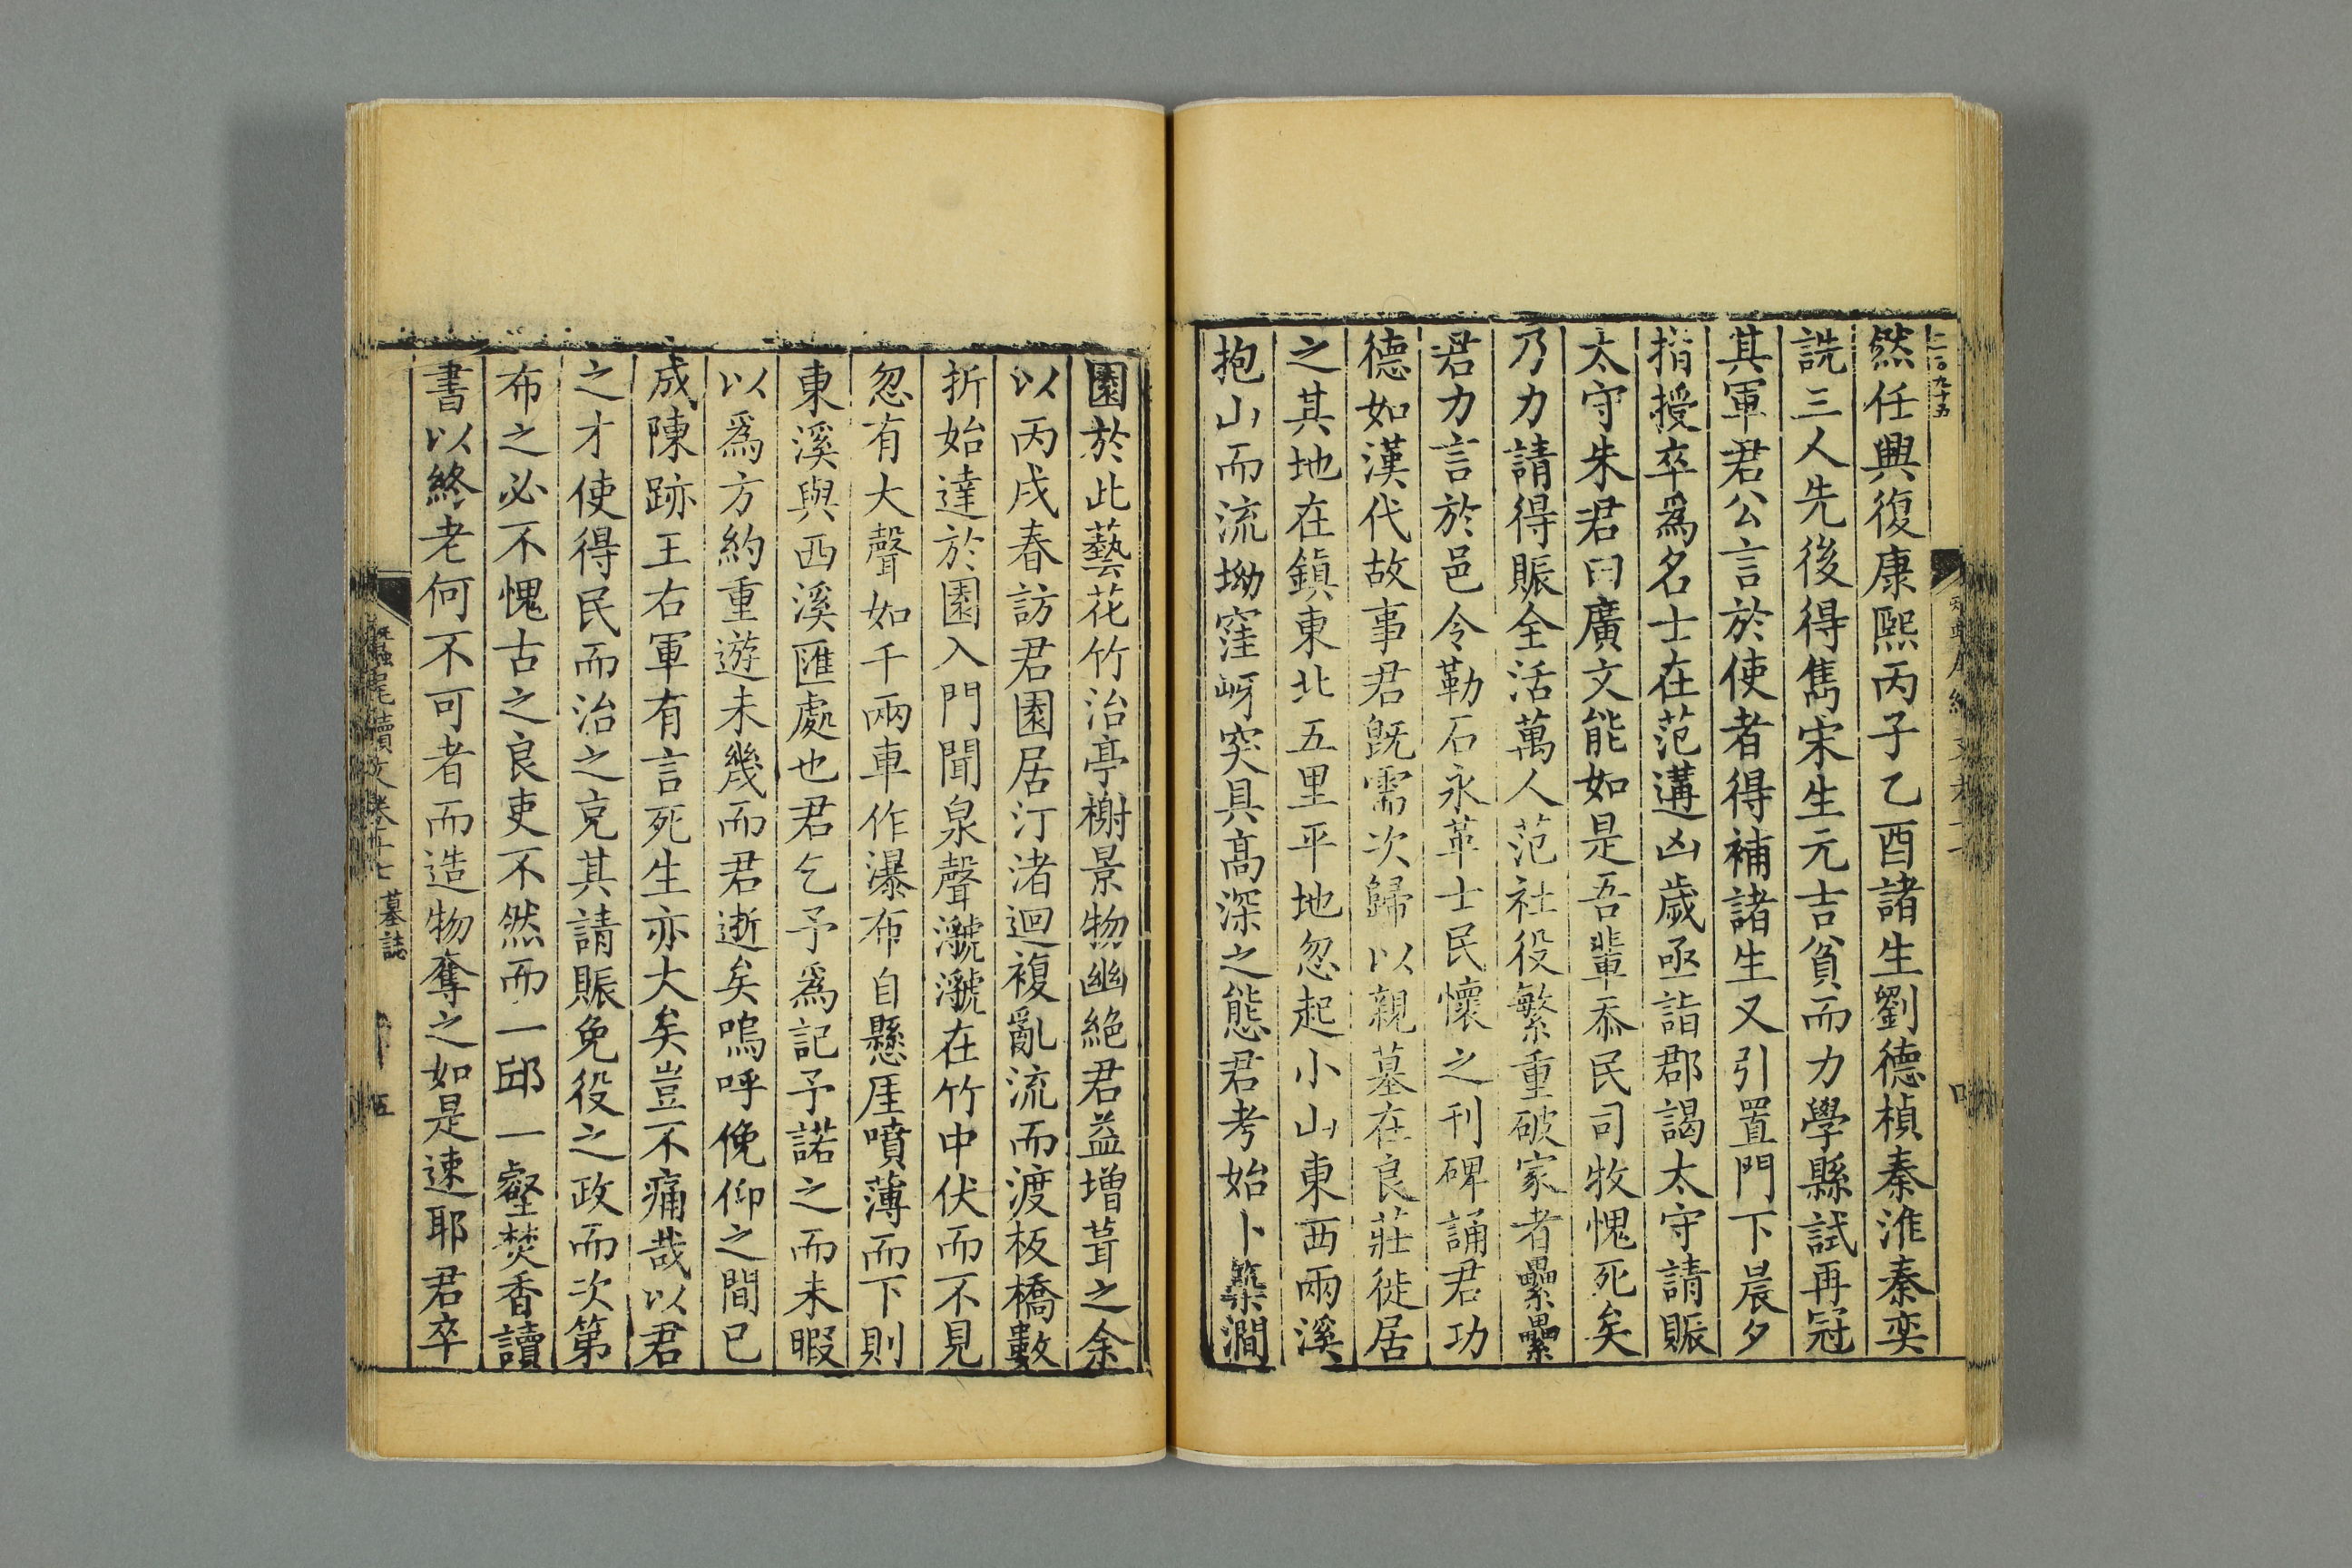 二百九十五
然任興復康熙丙子乙酉諸生劉德楨秦淮秦奕
詵三人先後得雋宋生元吉貧而力學縣試再冠
其軍君公言於使者得補諸生又引置門下晨夕
指授卒爲名士在范遘凶歲亟詣郡謁太守請賑
太守朱君曰廣文能如是吾輩忝民司牧愧死矣
乃力請得賑全活萬人范社役繁重破家者纍纍
君力言於邑令勒石永革士民懷之刊碑誦君功
德如漢代故事君既需次歸以親墓在良莊徙居
之其地在鎮東北五里平地忽起小山東西兩溪
抱山而流坳窪岈突具高深之態君考始卜築澗
園於此藝花竹治亭榭景物幽絶君益增葺之余
以丙戌春訪君園居汀渚迴複亂流而渡板橋數
折始達於園入門聞泉聲㶁㶁在竹中伏而不見
忽有大聲如千兩車作瀑布自懸厓噴薄而下則
東溪與西溪匯處也君乞予爲記予諾之而未暇
以爲方約重遊未幾而君逝矣嗚呼俛仰之間已
成陳跡王右軍有言死生亦大矣豈不痛哉以君
之才使得民而治之克其請賑免役之政而次第
布之必不愧古之良吏不然而一邱一壑焚香讀
書以終老何不可者而造物奪之如是速耶君卒
蠶尾續文卷十七 墓誌 五